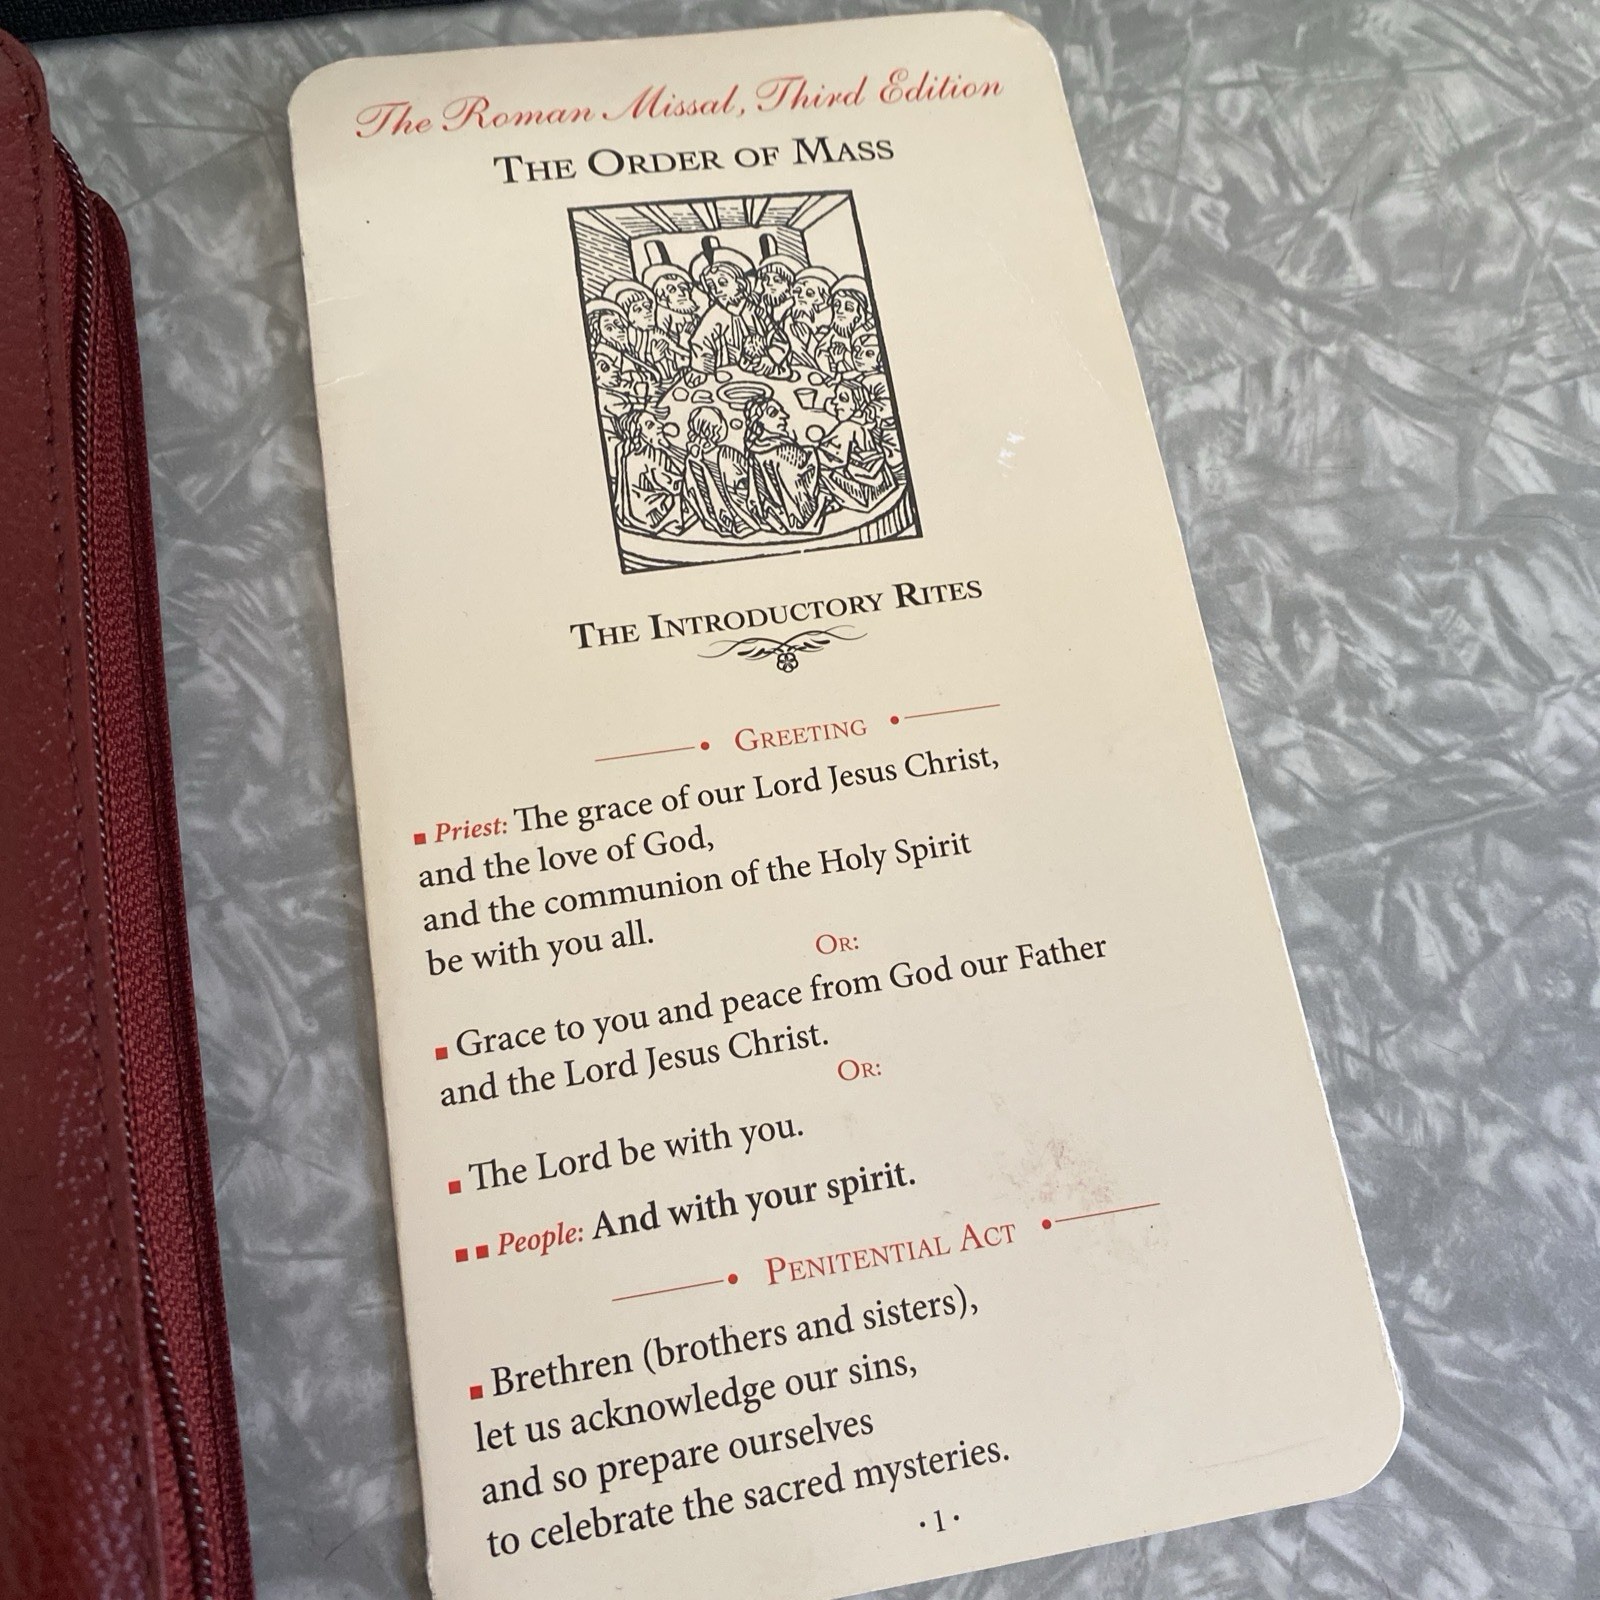 The Roman Missal, Third Edition
THE ORDER OF MASS
THE INTRODUCTORY RITES
GREETING
Priest: The grace of our Lord Jesus Christ,
and the love of God,
and the communion of the Holy Spirit
be with you all.
OR:
Grace to you and peace from God our Father
and the Lord Jesus Christ.
OR:
The Lord be with you.
People: And with your spirit.
PENITENTIAL ACT
Brethren (brothers and sisters),
let us acknowledge our sins,
and so prepare ourselves
to celebrate the sacred mysteries.
· 1 ·